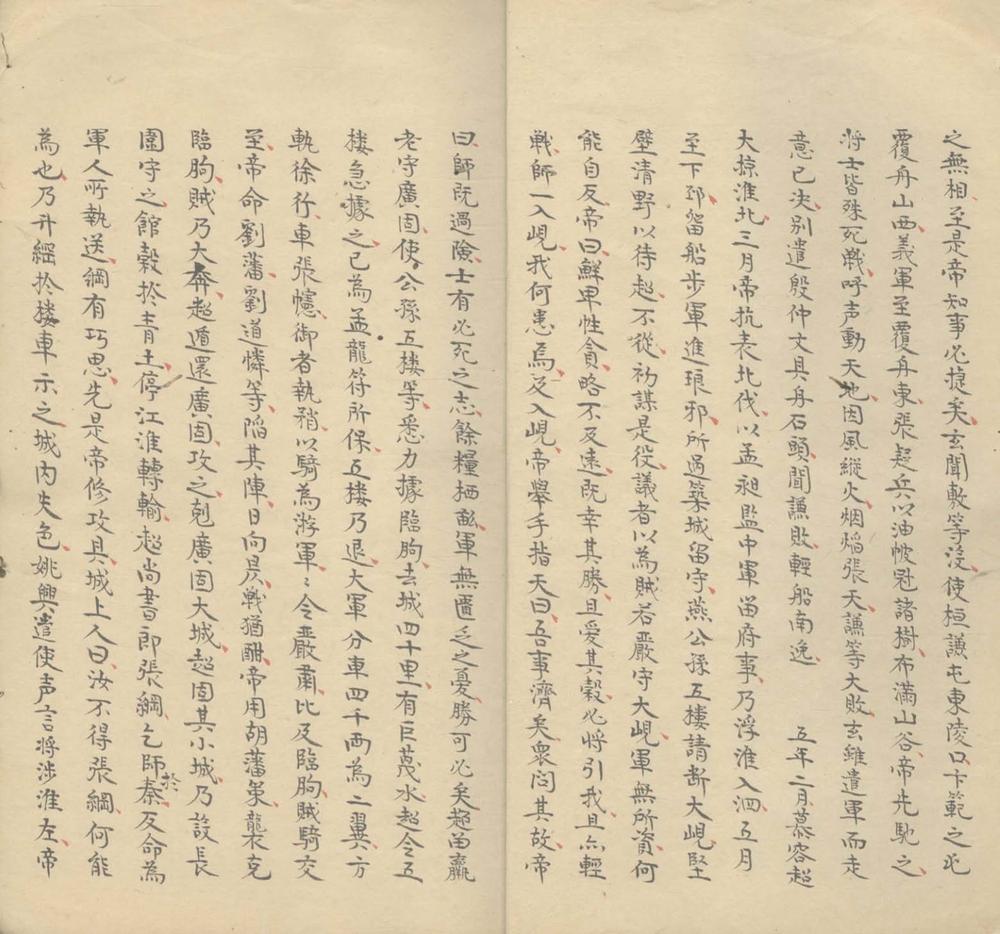 之無相至是帝知事必捷矣玄聞敷等沒使桓謙屯東陵口卞範之屯
覆舟山西義軍至覆舟東張疑兵以油帔冠諸樹布滿山谷帝先馳之
将士皆殊死戰呼声動天地因風縱火烟焰張天謙等大敗玄雖遣軍而走
意已决别遣殷仲文具舟石頭聞謙敗輕船南逸　五年二月慕容超
大掠淮北三月帝抗表北伐以孟昶監中軍留府事乃浮淮入泗五月
至下邳留船步軍進琅邪所過築城留守燕公孫五楼請断大峴堅
壁清野以待超不從初謀是役議者以為賊若嚴守大峴軍無所資何
能自反帝曰鮮卑性貪略不及遠既幸其勝且爱其穀必将引我且亦輕
戰師一入峴我何患焉及入峴帝舉手指天曰吾事濟矣衆问其故帝
曰師既過險士有必死之志餘糧栖畝軍無匱乏之憂勝可必矣超留羸
老守廣固使公孫五楼等悉力據臨朐去城四十里有巨蔑水超令五
楼急據之已為孟龍符所保五楼乃退大軍分車四千兩為二翼方
軌徐行車張幰御者執矟以騎為游軍〻令嚴肅比及臨朐賊騎交
至帝命劉藩劉道憐等陷其陣日向昃戰猶酣帝用胡藩策襲克
臨朐賊乃大奔超遁還廣固攻之剋廣固大城超固其小城乃設長
圍守之館穀於青土停江淮轉輸超尚書郎張綱乞師於秦反命為
軍人所執送綱有巧思先是帝修攻具城上人曰汝不得張綱何能
為也乃升綱於楼車示之城内失色姚興遣使声言将涉淮左帝